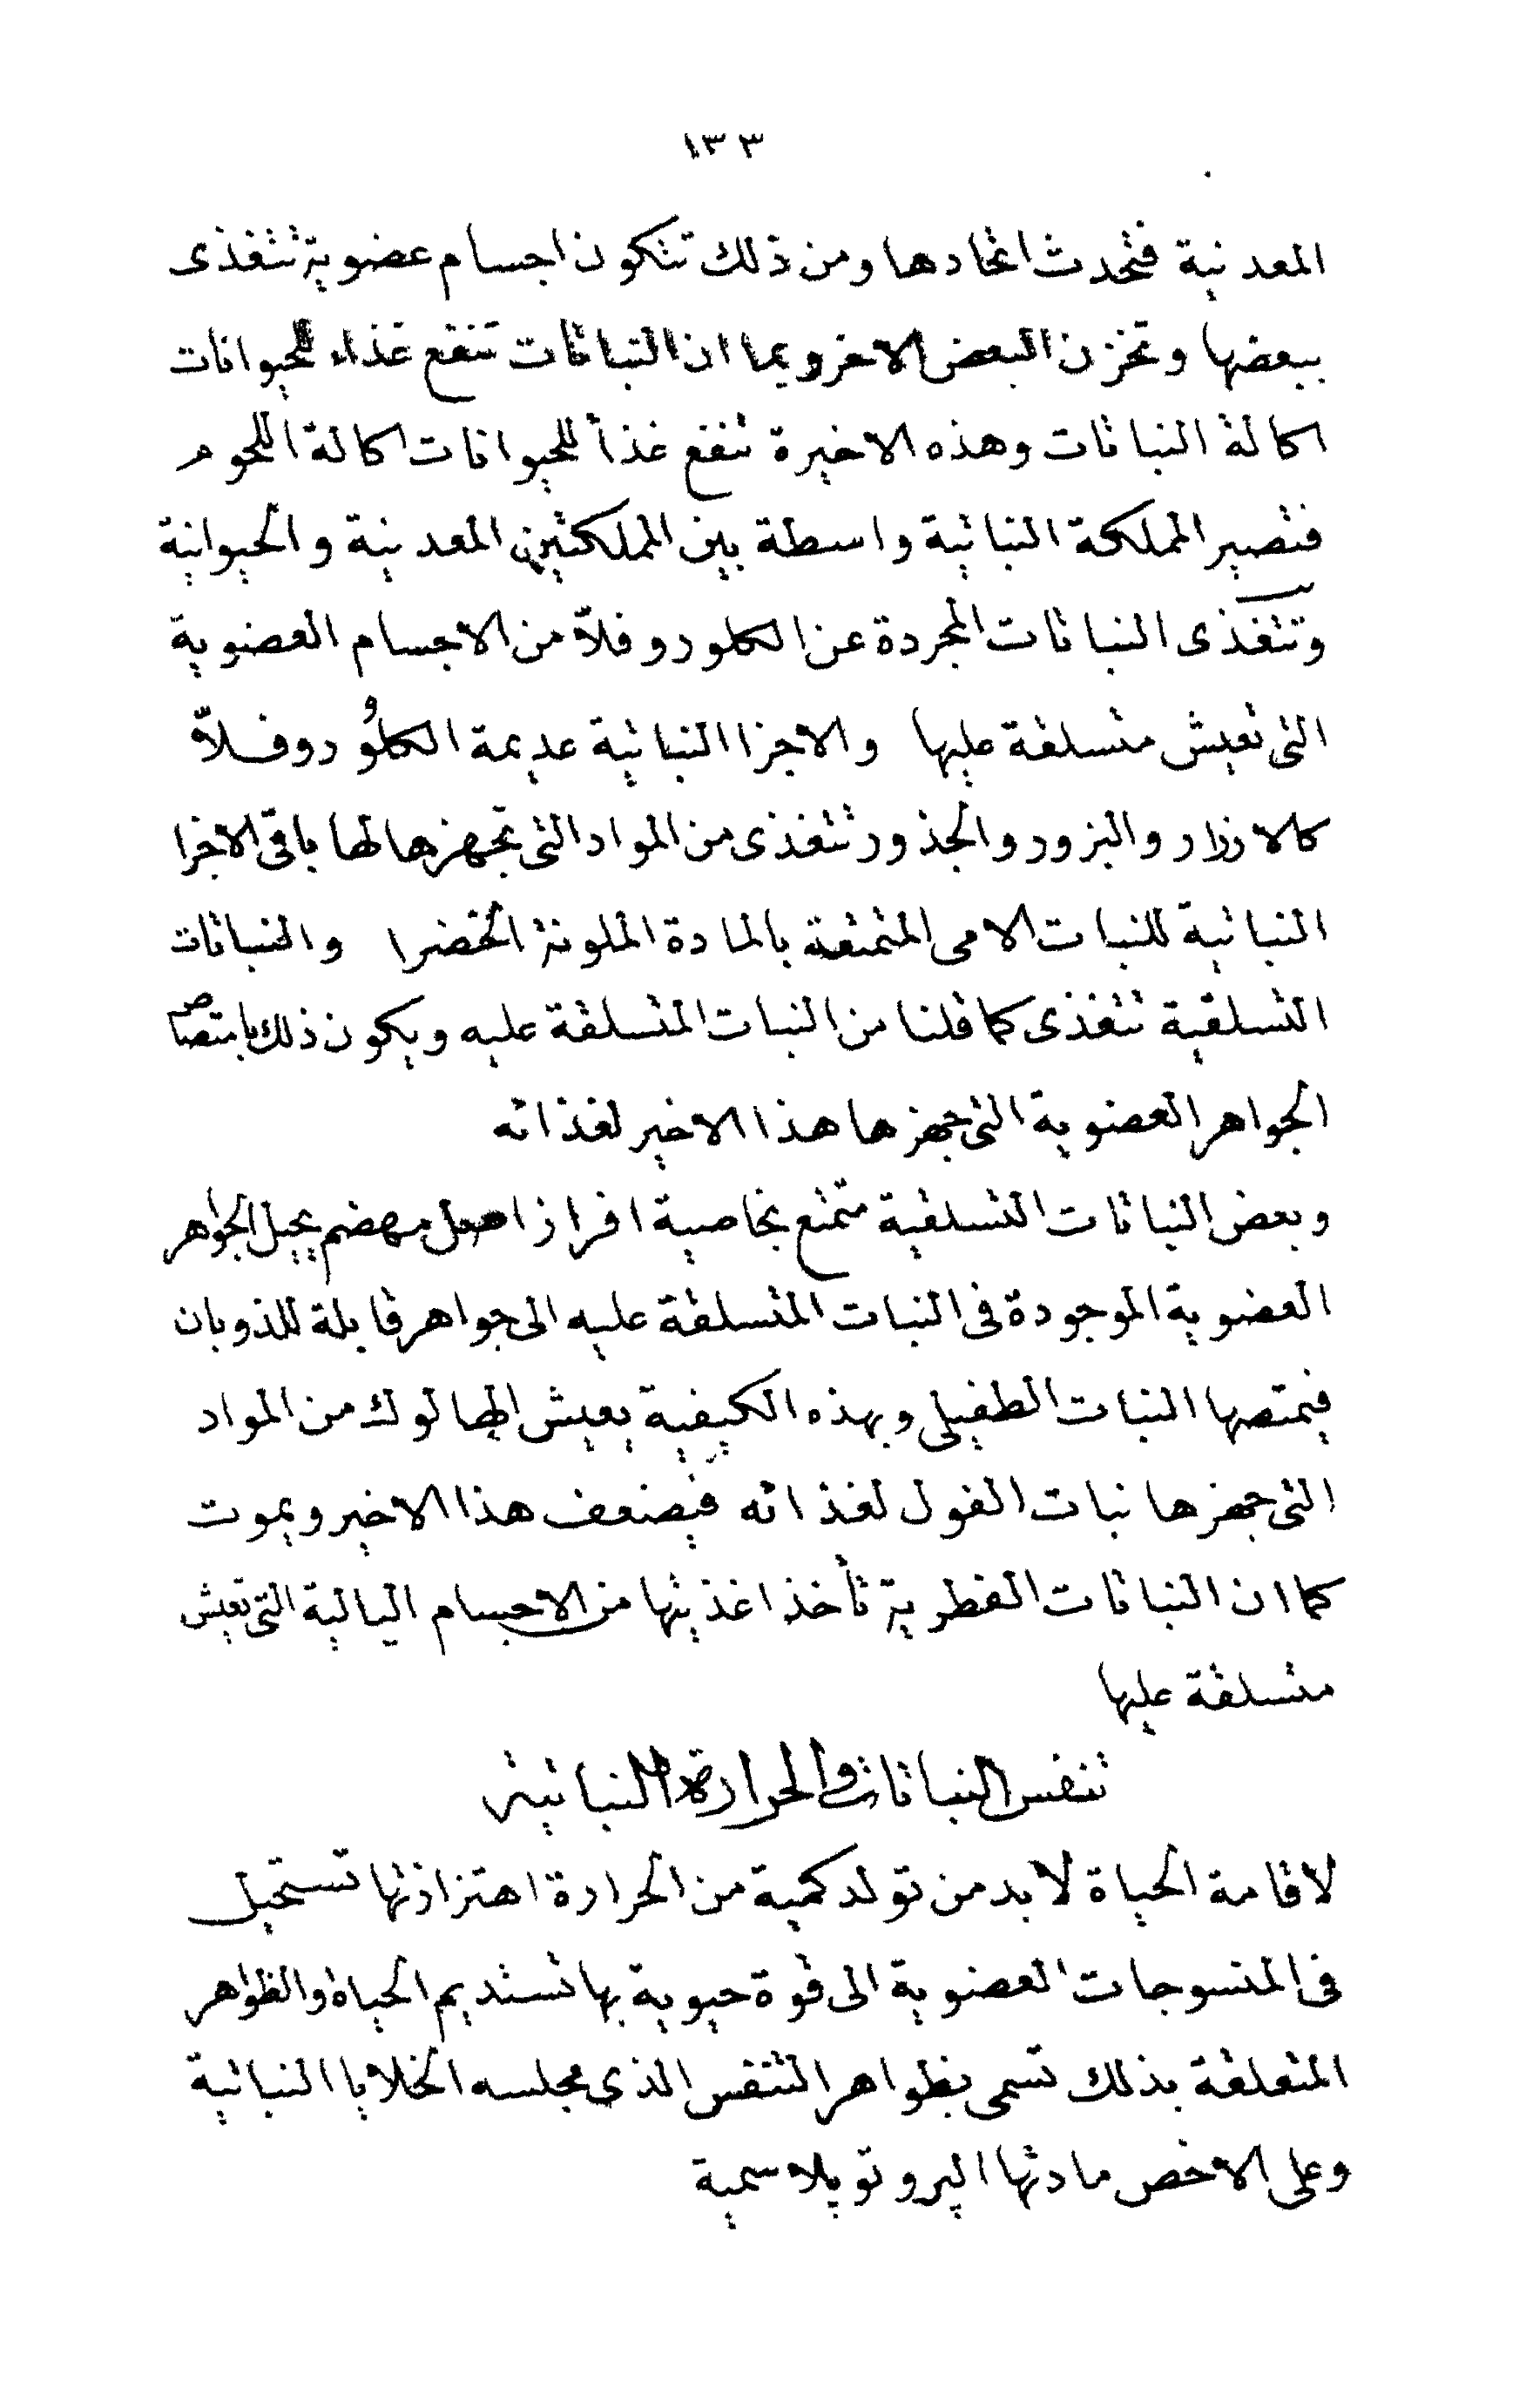 ١٣٣
المعدنية فتحدث اتحادها ومن ذلك تتكون اجسام عضوية تتغذى
ببعضها وتخزن البعض الاخر وبما ان النباتات تنفع غذاء للحيوانات
اكالة النباتات وهذه الاخيرة تنفع غذأ للحيوانات اكالة اللحوم
فتصير المملكة النباتية واسطة بين المملكتين المعدنية والحيوانية
وتتغذى النباتات المجردة عن الكلوروفلاّ من الاجسام العضوية
التى تعيش متسلقة عليها والاجزا النباتية عديمة الكلُوروفلاّ
كالازرار والبزور والجذور تتغذى من المواد التى تجهزها لها باقى الاجزا
النباتية للنبات الامى المتمتعة بالمادة الملونة الخضرا والنباتات
التسلقية تتغذى كما قلنا من النبات المتسلقة عليه ويكون ذلك بامتصاص
الجواهر العضوية التى جهزها هذا الاخير لغذائه
وبعض النباتات التسلقية متمتع بخاصية افراز اصل مهضم يحيل الجواهر
العضوية الموجودة فى النبات المتسلقة عليه الى جواهر قابلة للذوبان
فيمتصها النبات الطفيلى وبهذه الكيفية يعيش الهالوك من المواد
التى جهزها نبات الفول لغذائه فيضعف هذا الاخير ويموت
كما ان النباتات الفطرية تأخذ اغذيتها من الاجسام البالية التى تعيش
متسلقة عليها
تنفس النباتات والحرارة النباتية
لاقامة الحياة لابد من تولد كمية من الحرارة اهتزازتها تستحيل
فى المنسوجات العضوية الى قوة حيوية بها تستديم الحياة والظواهر
المتعلقة بذلك تسمى بظواهر التنفس الذى مجلسه الخلايا النباتية
وعلى الاخص مادتها البروتوپلاسمية